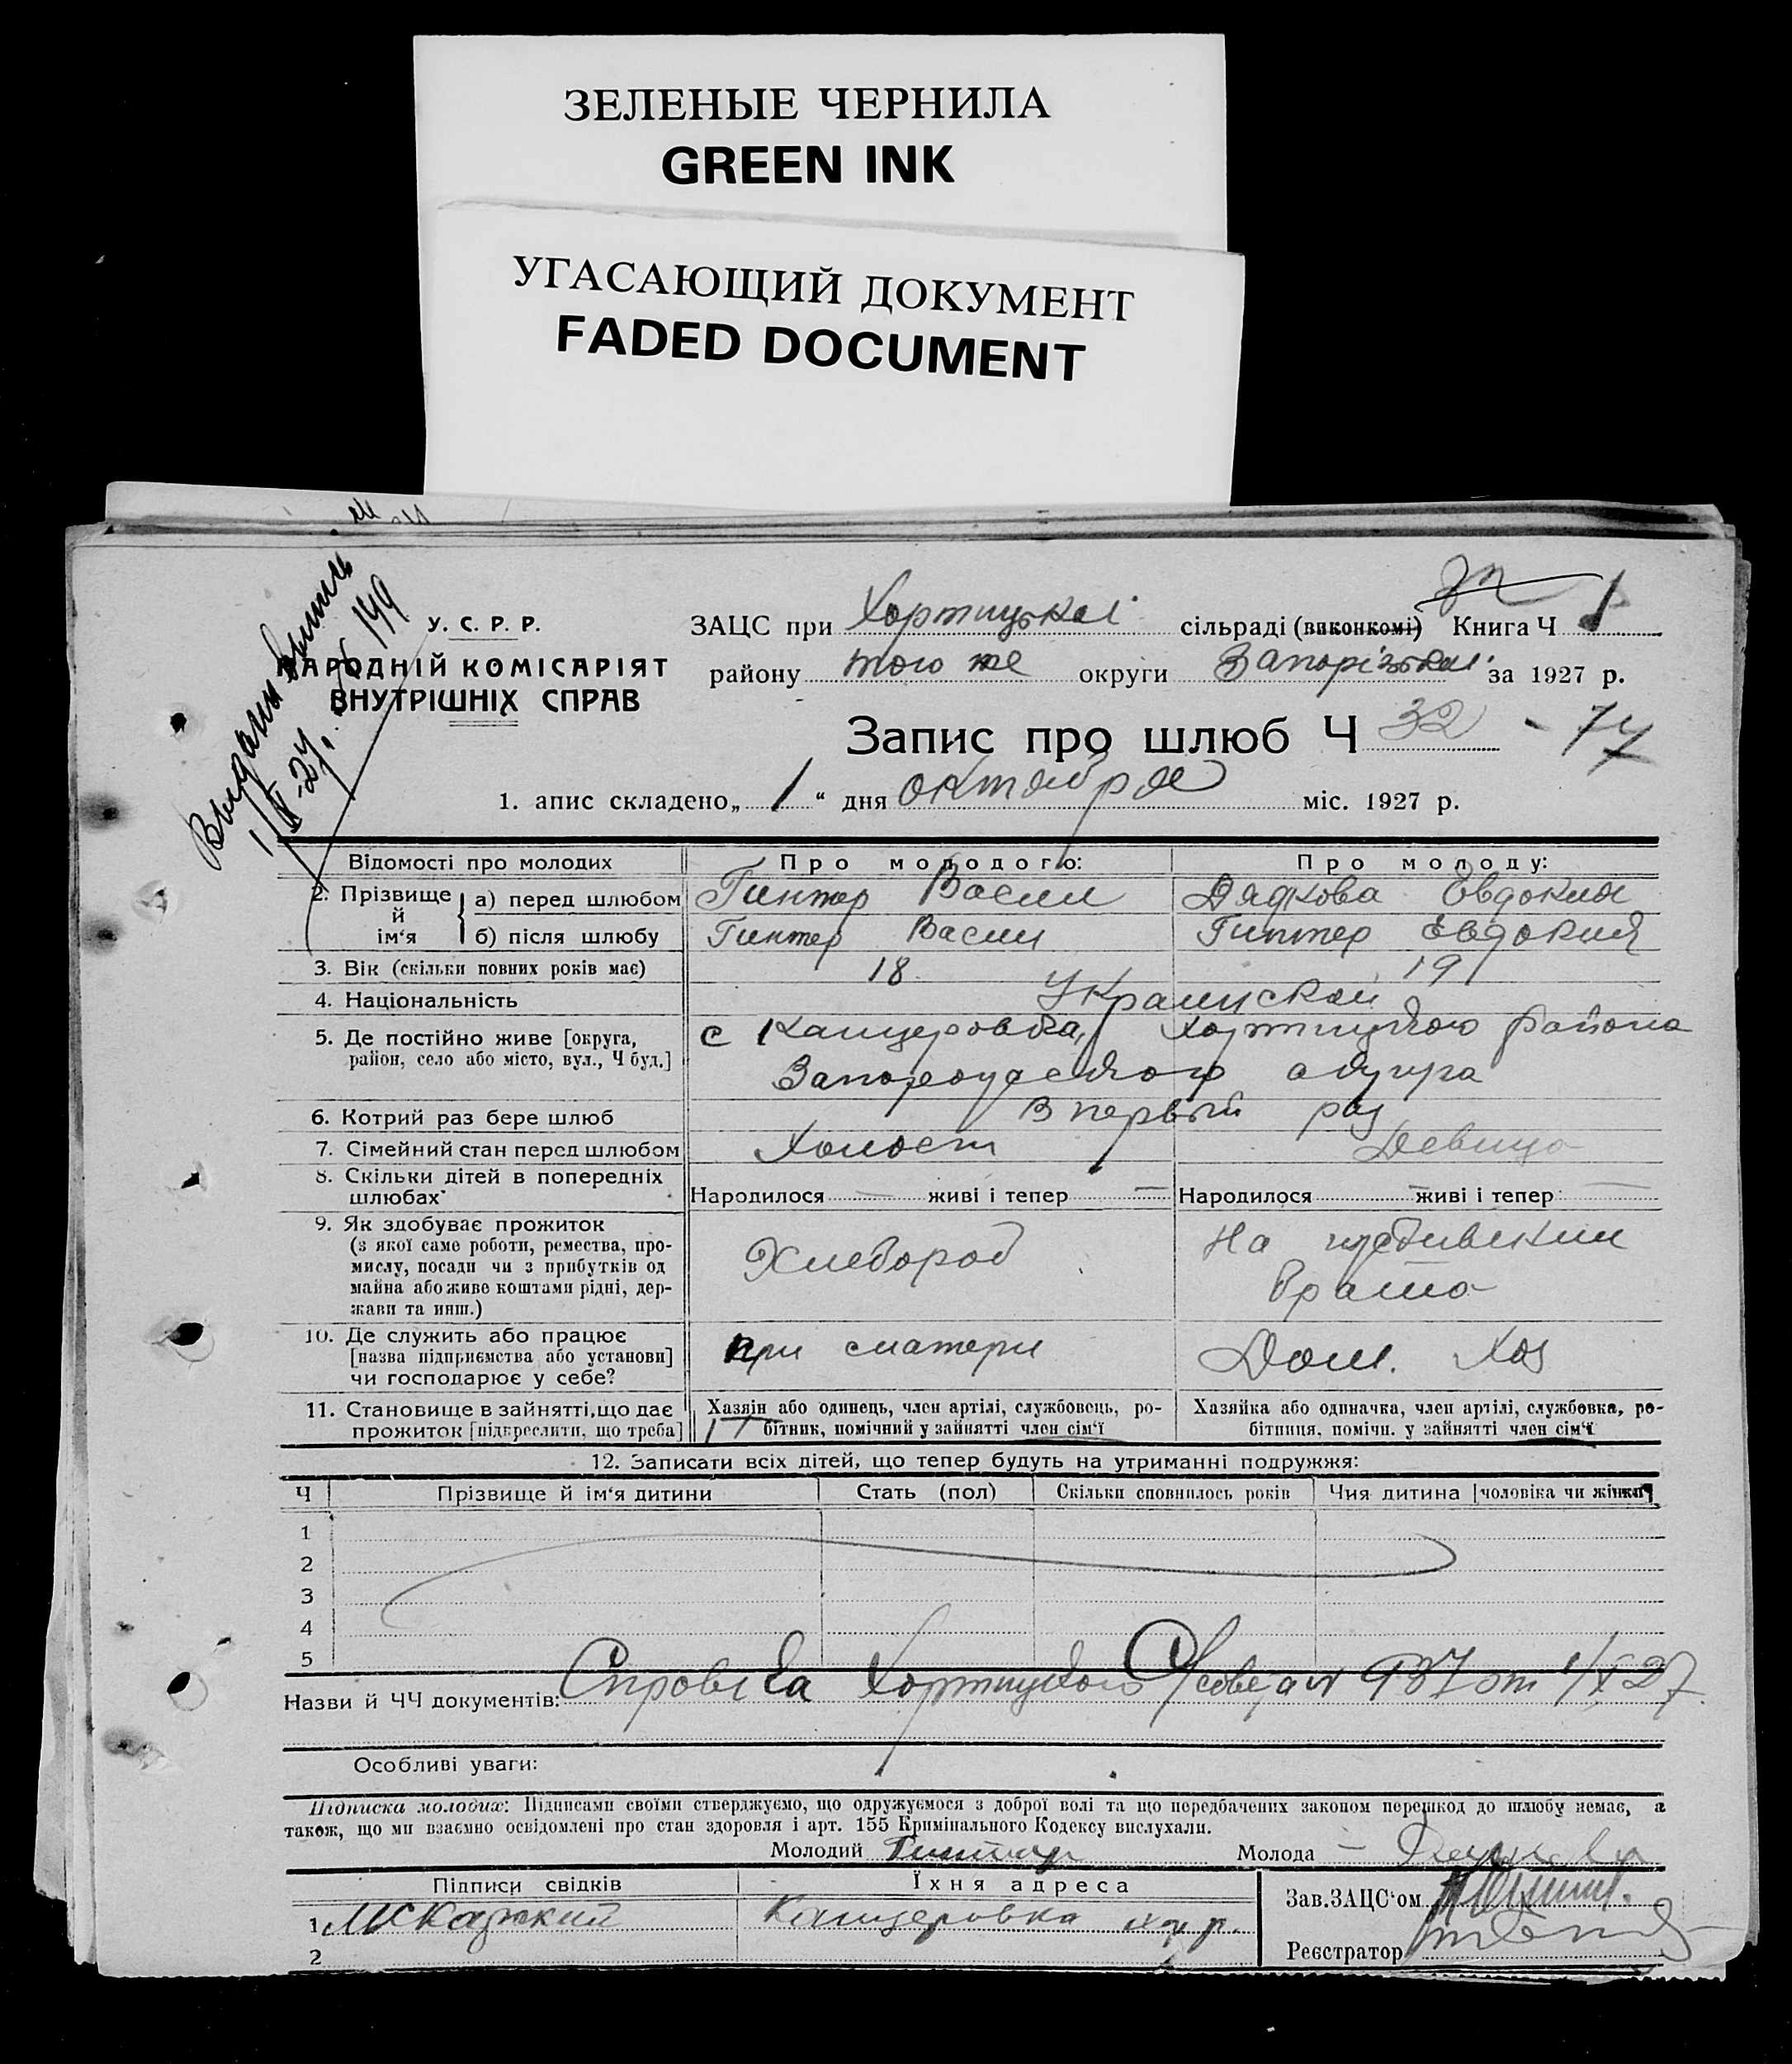 ЗЕЛЕНЫЕ ЧЕРНИЛА
GREEN INK
УГАСАЮЩИЙ ДОКУМЕНТ
FADED DOCUMENT
У. С. Р. Р.
НАРОДНІЙ КОМІСАРІЯТ
ВНУТРІШНІХ СПРАВ
ЗАЦС при Хортицької сільраді (виконкомі) Книга Ч 1
району того же округи Запорізької за 1927 р.
Запис про шлюб Ч 32 - 77
1. апис складено „ 1 “ дня октября міс. 1927 р.
Відомості про молодих Про молодого: Про молоду:
2. Прізвище й ім‘я а) перед шлюбом Гинтер Васил Дядкова Евдокия
б) після шлюбу Гинтер Васил Гинтер Евдокия
3. Вік (скільки повних років має) 18 19
4. Національність
5. Де постійно живе [округа, район, село або місто, вул., Ч буд.] с Канцеровка, Хортицкого района
Запорожского округа
6. Котрий раз бере шлюб Впервый раз
7. Сімейний стан перед шлюбом Холост Девица
8. Скільки дітей в попередніх шлюбах Народилося — живі і тепер — Народилося — живі і тепер —
9. Як здобуває прожиток
(з якої саме роботи, ремества, про-
мислу, посади чи з прибутків од
майна або живе коштами рідні, дер-
жави та инш.)
Хлебороб
На иждивении
брата
10. Де служить або працює
[назва підприємства або установи]
чи господарює у себе?
при матери Дом. Хоз
11. Становище в зайнятті, що дає
прожиток [підкреслити, що треба]
Хазяїн або одинець, член артілі, службовець, ро-
бітник, помічний у зайнятті член сім‘ї
Хазяйка або одиначка, член артілі, службовка, ро-
бітниця, помічн. у зайнятті член сім‘ї
12. Записати всіх дітей, що тепер будуть на утриманні подружжя:
Ч Прізвище й ім‘я дитини Стать (пол) Скільки сповнилось років Чия дитина [чоловіка чи жінки]
1
2
3
4
5
Назви й ЧЧ документів: Справка Хортицкого С/совета № 937 от 1/X 27
Особливі уваги:
Підписка молодих: Підписами своїми стверджуємо, що одружуємося з доброї волі та що передбачених законом перешкод до шлюбу немає, а
також, що ми взаємно освідомлені про стан здоровля і арт. 155 Кримінального Кодексу вислухали.
Молодий Гинтер Молода
Підписи свідків Їхня адреса
Зав.ЗАЦС‘ом
1. Канцеровка
Реєстратор
2